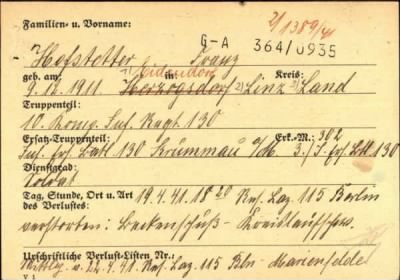 Familien- u. Vorname: 2/1389/41
G-A 364/0935
Hofstetter, Franz
geb. am: in Kreis:
9.12.1911 1) Herzogsdorf 2) Linz 3) Land
Truppenteil:
10. Komp. Inf. Regt. 130
Ersatz-Truppenteil: Erk.-M.: 302
Inf. Ers. Batl. 130 Krummau a/M 3./I. Ers. Btl. 130
Dienstgrad:
Soldat
Tag, Stunde, Ort u. Art 19.4.41. 18 20 Res. Laz. 115 Berlin
des Verlustes:
verstorben: Beckenschuß -
Urschriftliche Verlust-Listen Nr.:
v. 22.4.41. Res. Laz. 115 Bln - Marienfelde